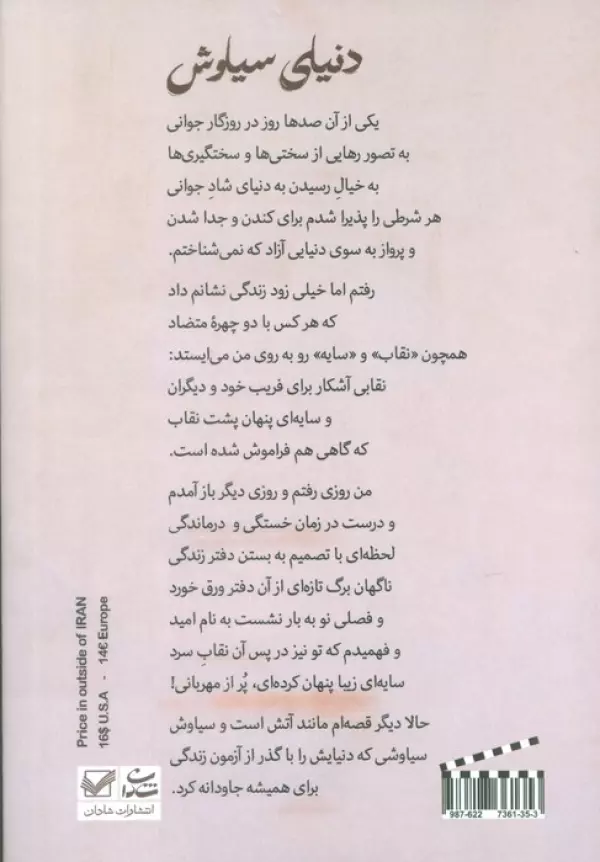 دنیای سیاوش
یکی از آن صدها روز در روزگار جوانی
به تصور رهایی از سختی‌ها و سختگیری‌ها
به خیالِ رسیدن به دنیای شادِ جوانی
هر شرطی را پذیرا شدم برای کندن و جدا شدن
و پرواز به سوی دنیایی آزاد که نمی‌شناختم.
رفتم اما خیلی زود زندگی نشانم داد
که هر کس با دو چهرهٔ متضاد
همچون «نقاب» و «سایه» رو به روی من می‌ایستد:
نقابی آشکار برای فریب خود و دیگران
و سایه‌ای پنهان پشت نقاب
که گاهی هم فراموش شده است.
من روزی رفتم و روزی دیگر باز آمدم
و درست در زمان خستگی و درماندگی
لحظه‌ای با تصمیم به بستن دفتر زندگی
ناگهان برگ تازه‌ای از آن دفتر ورق خورد
و فصلی نو به بار نشست به نام امید
و فهمیدم که تو نیز در پس آن نقابِ سرد
سایه‌ای زیبا پنهان کرده‌ای، پُر از مهربانی!
حالا دیگر قصه‌ام مانند آتش است و سیاوش
سیاوشی که دنیایش را با گذر از آزمون زندگی
برای همیشه جاودانه کرد.
Price in outside of IRAN
16$ U.S.A - 14€ Europe
شادان
انتشارات شادان
987-622 7361-35-3